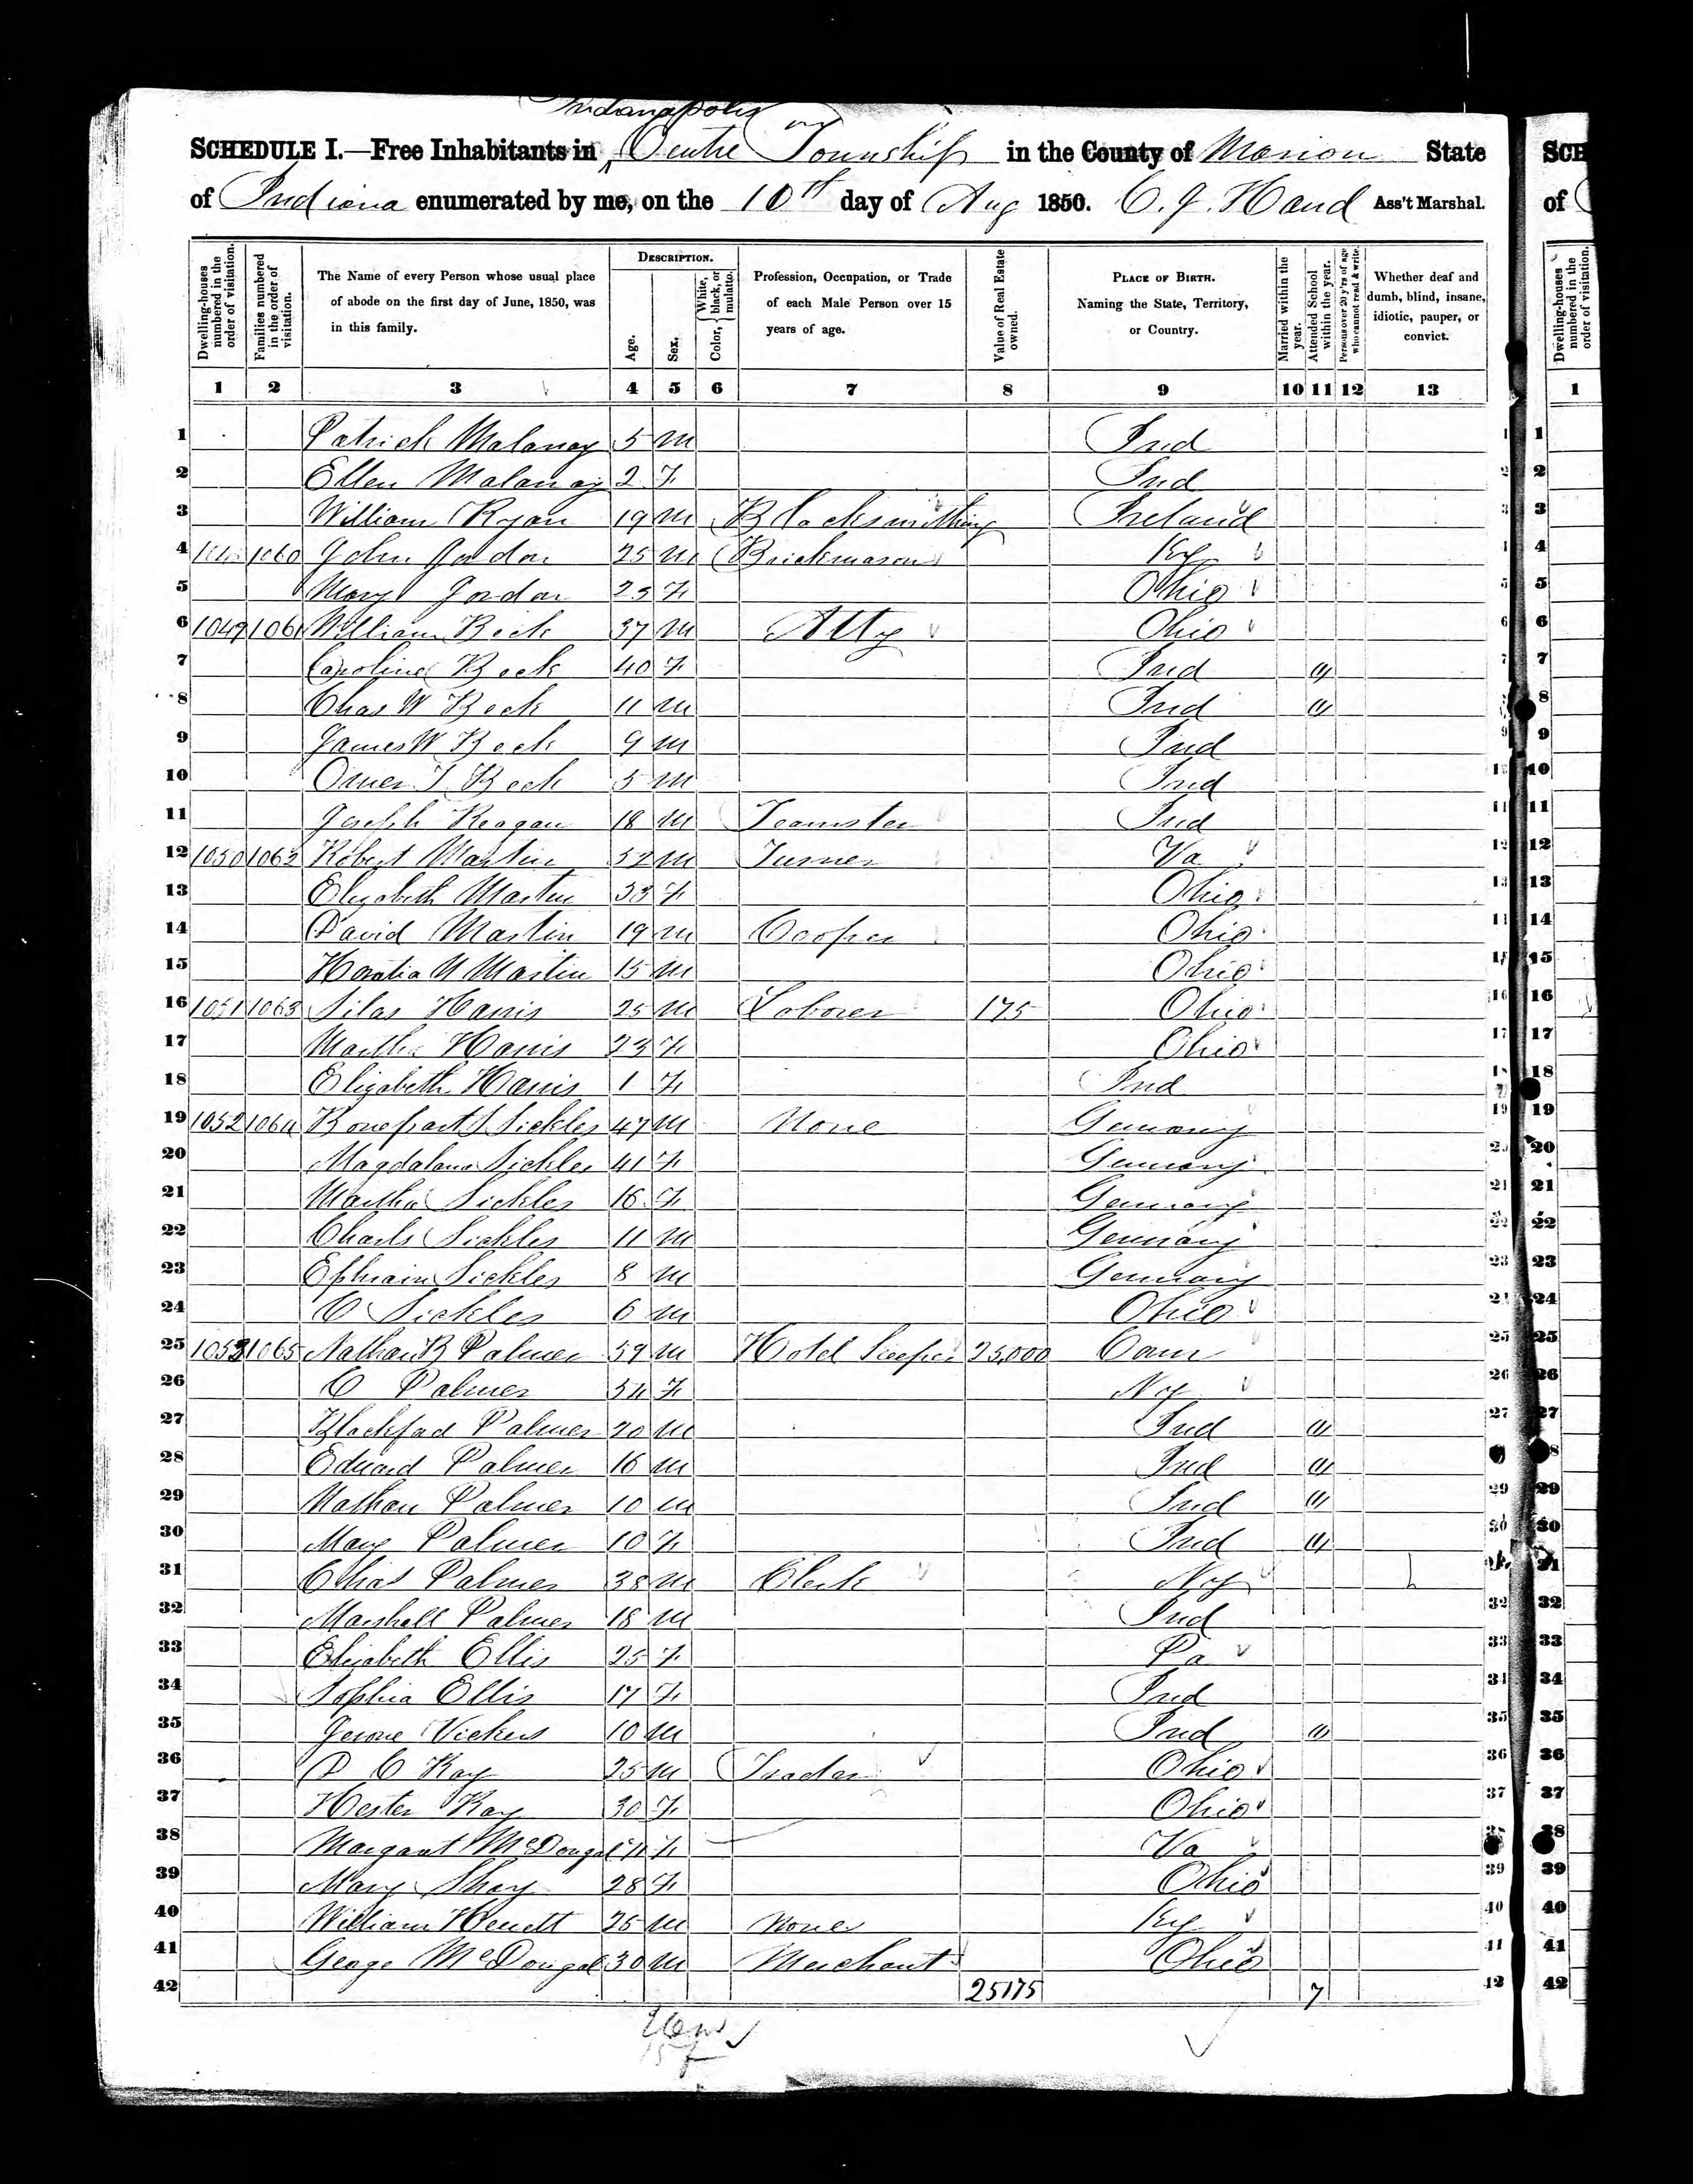 Indianapolis
SCHEDULE I.—Free Inhabitants in Centre Township in the County of Marion State SCH
of Indiana enumerated by me, on the 10th day of Aug 1850. C. J. Hand Ass't Marshal. of
Dwelling-houses numbered in the order of visitation. Families numbered in the order of visitation. The Name of every Person whose usual place of abode on the first day of June, 1850, was in this family. DESCRIPTION. Age. Sex. Color, White, black, or mulatto. Profession, Occupation, or Trade of each Male Person over 15 years of age. Value of Real Estate owned. PLACE OF BIRTH. Naming the State, Territory, or Country. Married within the year. Attended School within the year. Persons over 20 y'rs of age who cannot read & write. Whether deaf and dumb, blind, insane, idiotic, pauper, or convict. Dwelling-houses numbered in the order of visitation.
1 2 3 4 5 6 7 8 9 10 11 12 13 1
1 Patrick Malanay 5 M Ind 1 1
2 Ellen Malanay 2 F Ind 2 2
3 William Ryan 19 M Blacksmithing Ireland 3 3
4 1048 1060 John Jordan 25 M Brickmason Ky 4 4
5 Mary Jordan 23 F Ohio 5 5
6 1049 1061 William Beck 37 M Atty Ohio 6 6
7 Caroline Beck 40 F Ind 1 7 7
8 Chas W Beck 11 M Ind 1 8
9 James W Beck 9 M Ind 9 9
10 Omer T Beck 5 M Ind 10 10
11 Joseph Reagan 18 M Teamster Ind 11 11
12 1050 1062 Robert Martin 52 M Turner Va 12 12
13 Elizabeth Martin 33 F Ohio 13 13
14 David Martin 19 M Cooper Ohio 14 14
15 Horatia N Martin 15 M Ohio 15 15
16 1051 1063 Silas Harris 25 M Laborer 175 Ohio 16 16
17 Martha Harris 23 F Ohio 17 17
18 Elizabeth Harris 1 F Ind 18 18
19 1052 1064 Bonepart S Sickles 47 M None Germany 19 19
20 Magdalana Sickles 41 F Germany 20 20
21 Martha Sickles 16 F Germany 21 21
22 Charls Sickles 11 M Germany 22 22
23 Ephraim Sickles 8 M Germany 23 23
24 C Sickles 6 M Ohio 24 24
25 1053 1065 Nathan B Palmer 59 M Hotel Keeper 25,000 Conn 25 25
26 C Palmer 54 F NY 26 26
27 Blackfad Palmer 20 M Ind 1 27 27
28 Edward Palmer 16 M Ind 1
29 Nathan Palmer 10 M Ind 1 29 29
30 Mary Palmer 10 F Ind 1 30 30
31 Chas Palmer 38 M Clerk NY 31 31
32 Marshall Palmer 18 M Ind 32 32
33 Elizabeth Ellis 25 F Pa 33 33
34 Sophia Ellis 17 F Ind 34 34
35 Jerome Vickers 10 M Ind 1 35 35
36 D C Kay 25 M Trader Ohio 36 36
37 Hester Kay 30 F Ohio 37 37
38 Margaret McDougal F Va 38 38
39 Mary Shay 28 F Ohio 39 39
40 William Hewett 25 M None Ky 40 40
41 George McDougal 30 M Merchant Ohio 41 41
42 25175 7 42 42
26 m
15 f